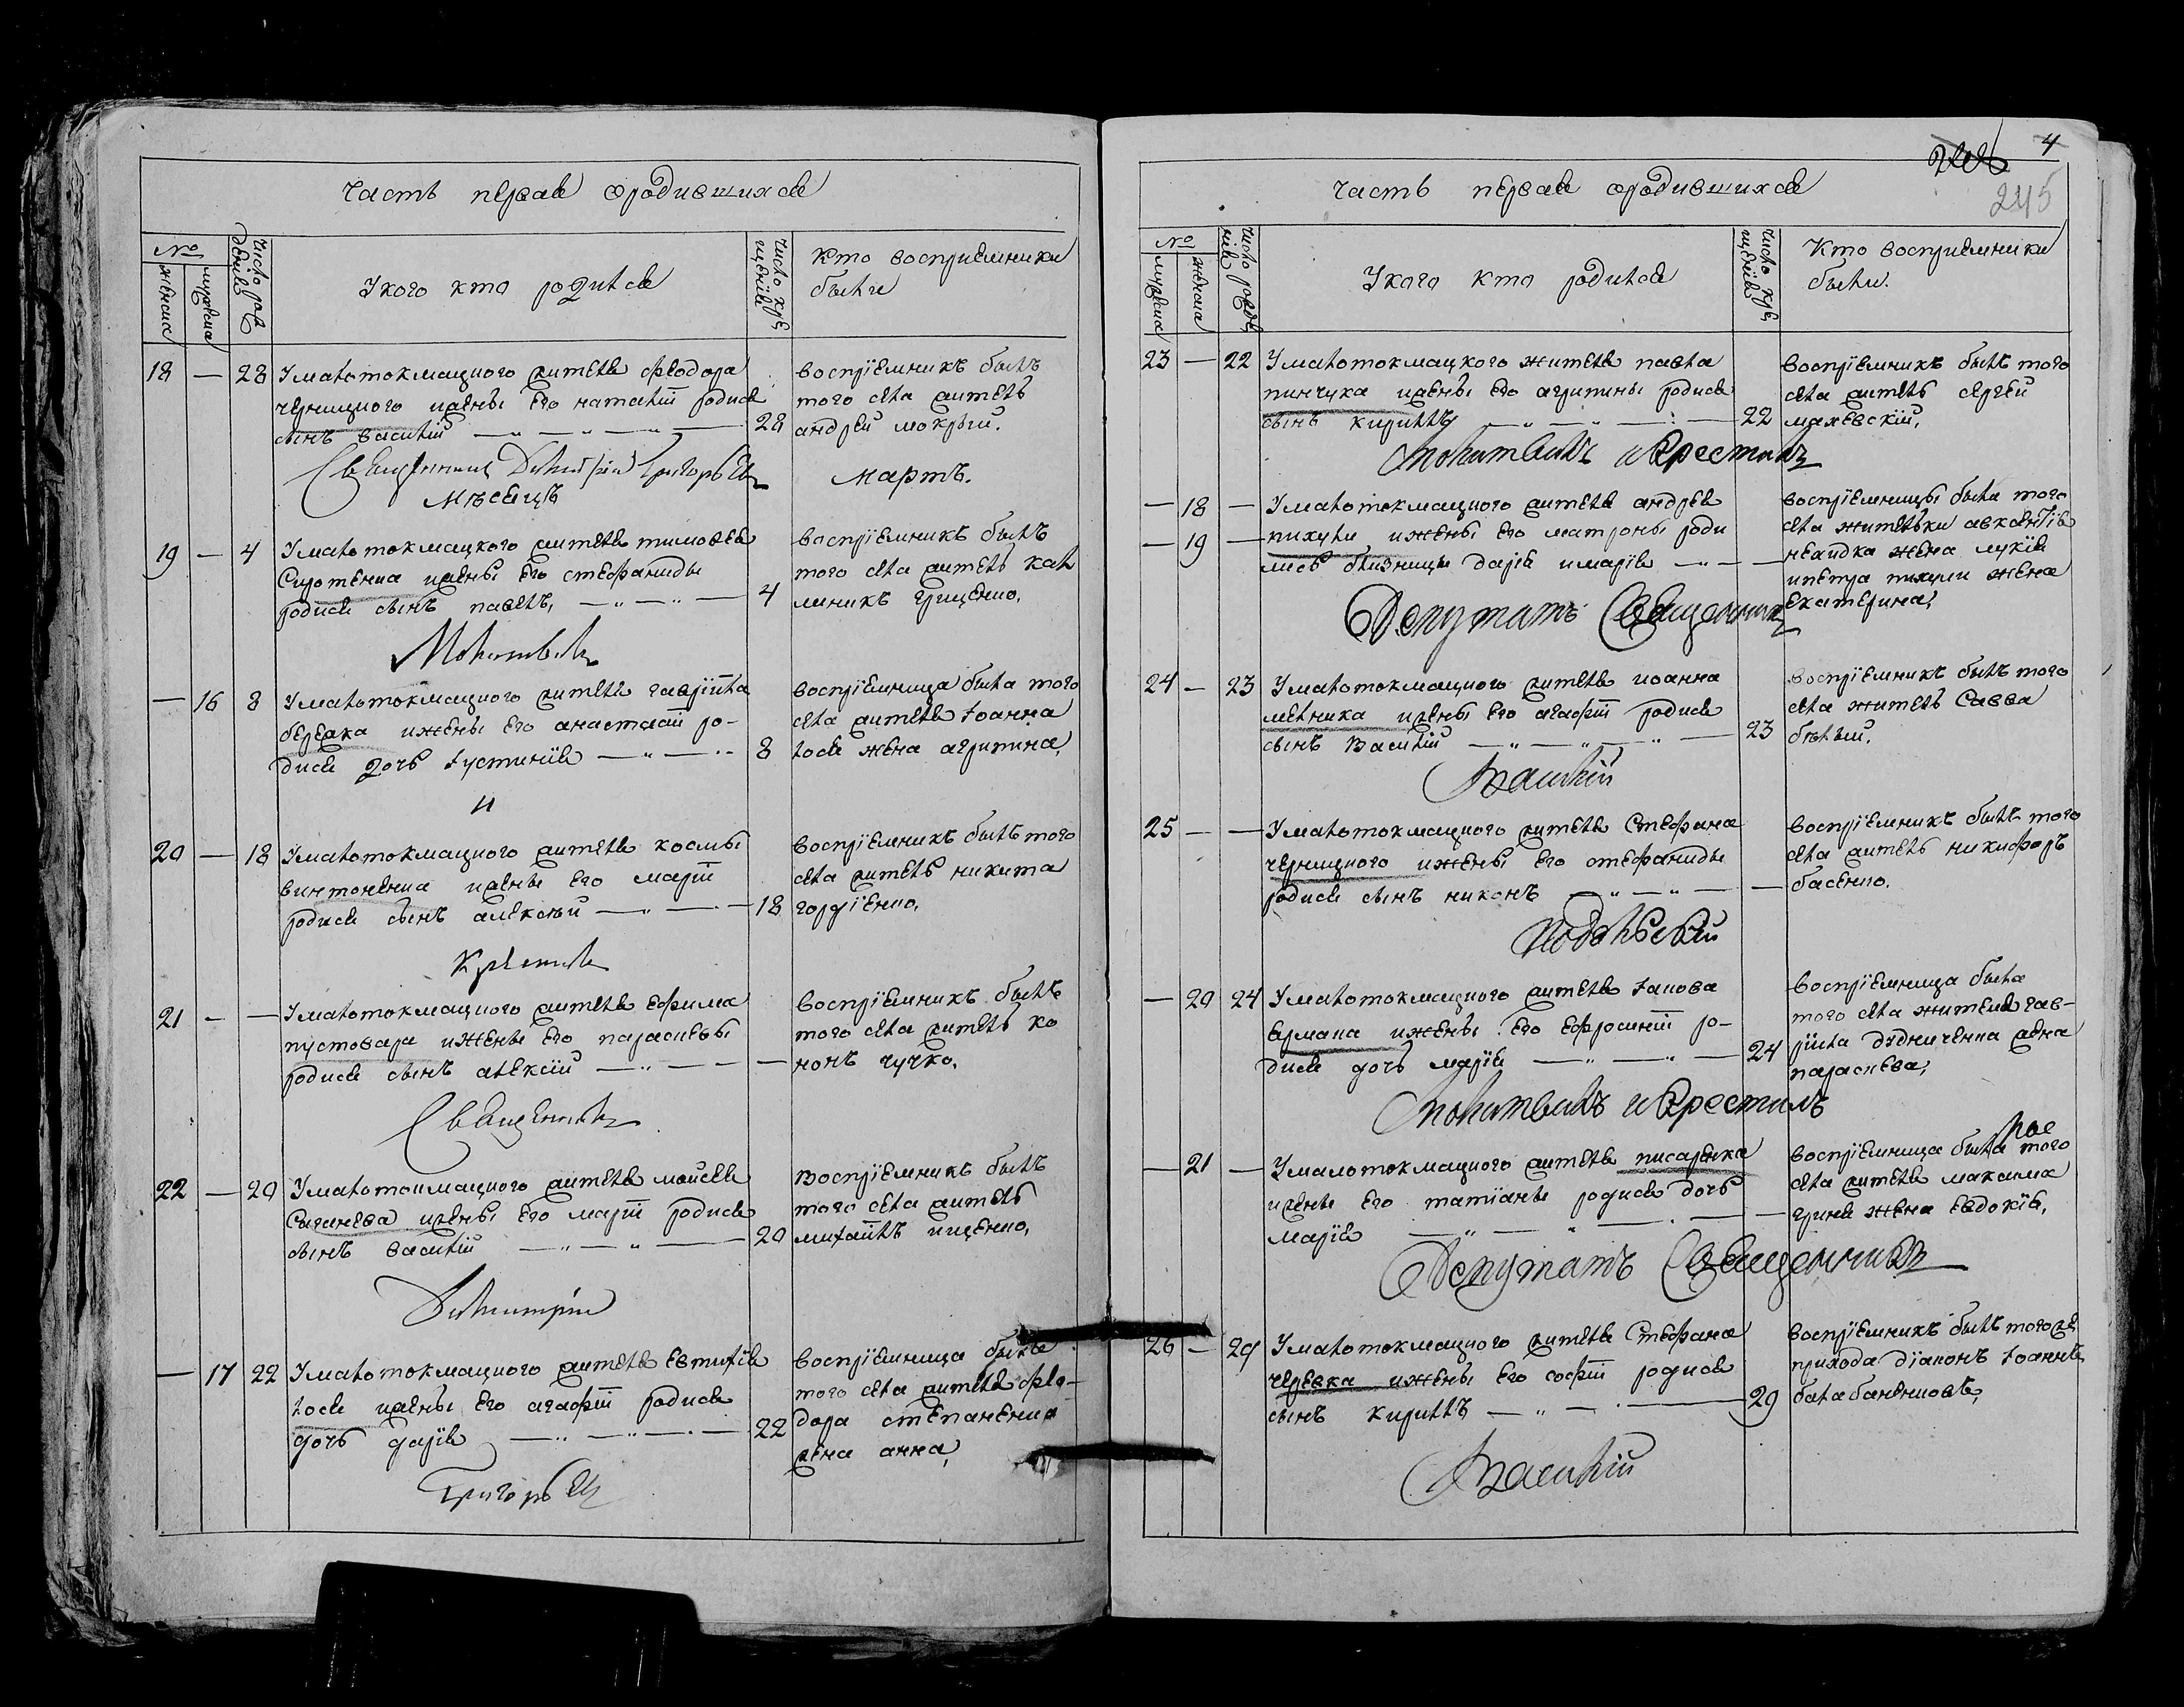 часть первая ородившихся
№
женска
мужеска
число рож
денія
Укого кто родился
число кре
щенія
Кто восприемники
были
18 — 28 Умалотокмацкого жителя феодора
черницкого ижены его наталіи родися
сынъ василій — 28
воспріемникъ былъ
того села житель
андрей мокрый.
Священникъ Димитрій Григорьевъ
Мѣсяцъ мартъ.
19 — 4 Умалотокмацкого жителя тимофея
Сиротенка ижены его стефаниды
родися сынъ павелъ, — 4
воспріемникъ былъ
того села житель кал
линикъ грищенко,
Молитвилъ
— 16 8 Умалотокмацкого жителя гавріила
березка ижены его анастасіи ро-
дися дочь Іустинія — 8
воспріемница была того
села жителя Іоанна
лося жена агрипина,
и
20 — 18 Умалотокмацкого жителя космы
винтоненка ижены его маріи
родися сынъ алексѣй — 18
воспріемникъ былъ того
села житель никита
гордіенко,
Крестилъ
21 — — Умалотокмацкого жителя ефима
пустовара ижены его параскевы
родися сынъ алексій — —
воспріемникъ былъ
того села житель ко
нонъ чучко,
Священникъ
22 — 20 Умалотокмацкого жителя моисея
Сыганева ижены его маріи родися
сынъ василій — 20
Воспріемникъ былъ
того села житель
михаилъ ищенко,
Димитрій
— 17 22 Умалотокмацкого жителя евтихія
лося ижены его агафіи родися
дочь дарія — 22
воспріемница была
того села жителя фео-
дора степаненка
жена анна,
Григорьевъ
4
245
часть первая ородившихся
№
мужеска
женска
число рожде
нія
Укого кто родился
число кре
щенія
Кто восприемники
были.
23 — 22 Умалотокмацкого жителя павла
пинчука ижены его агрипины родися
сынъ кириллъ — 22
воспріемникъ былъ того
села житель сергей
махевскій,
Молитвилъ и Крестилъ
— 18 — Умалотокмацкого жителя андрея
— 19 — пихули ижены его матроны роди
лись близницы дарія имарія — —
воспріемницы была того
села жительки авксентія
жена лукія
ипетра пихули жена
екатерина,
Депутатъ Священникъ
24 — 23 Умалотокмацкого жителя иоанна
мелника ижены его агафіи родися
сынъ Василій — 23
воспріемникъ былъ того
села житель Савва
бѣлый,
Василій
25 — — Умалотокмацкого жителя Стефана
черницкого ижены его стефаниды
родися сынъ никонъ — —
воспріемникъ былъ того
села житель никифоръ
басенко.
Подольскій
— 20 24 Умалотокмацкого жителя Іакова
ермака ижены его ефросиніи ро-
дися дочь марія — 24
воспріемница была
того села жителя гав-
ріила дудниченка жена
параскева,
Молитвилъ и Крестилъ
— 21 — Умалотокмацкого жителя писаренка
ижены его татіаны родися дочь
марія — —
воспріемница была того
села жителя максима
гриня жена евдокія,
Депутатъ Священникъ
26 — 29 Умалотокмацкого жителя Стефана
черевка ижены его софіи родися
сынъ кириллъ — 29
воспріемникъ былъ тогоже
прихода діаконъ Іоаннъ
балабаненковъ,
Василій